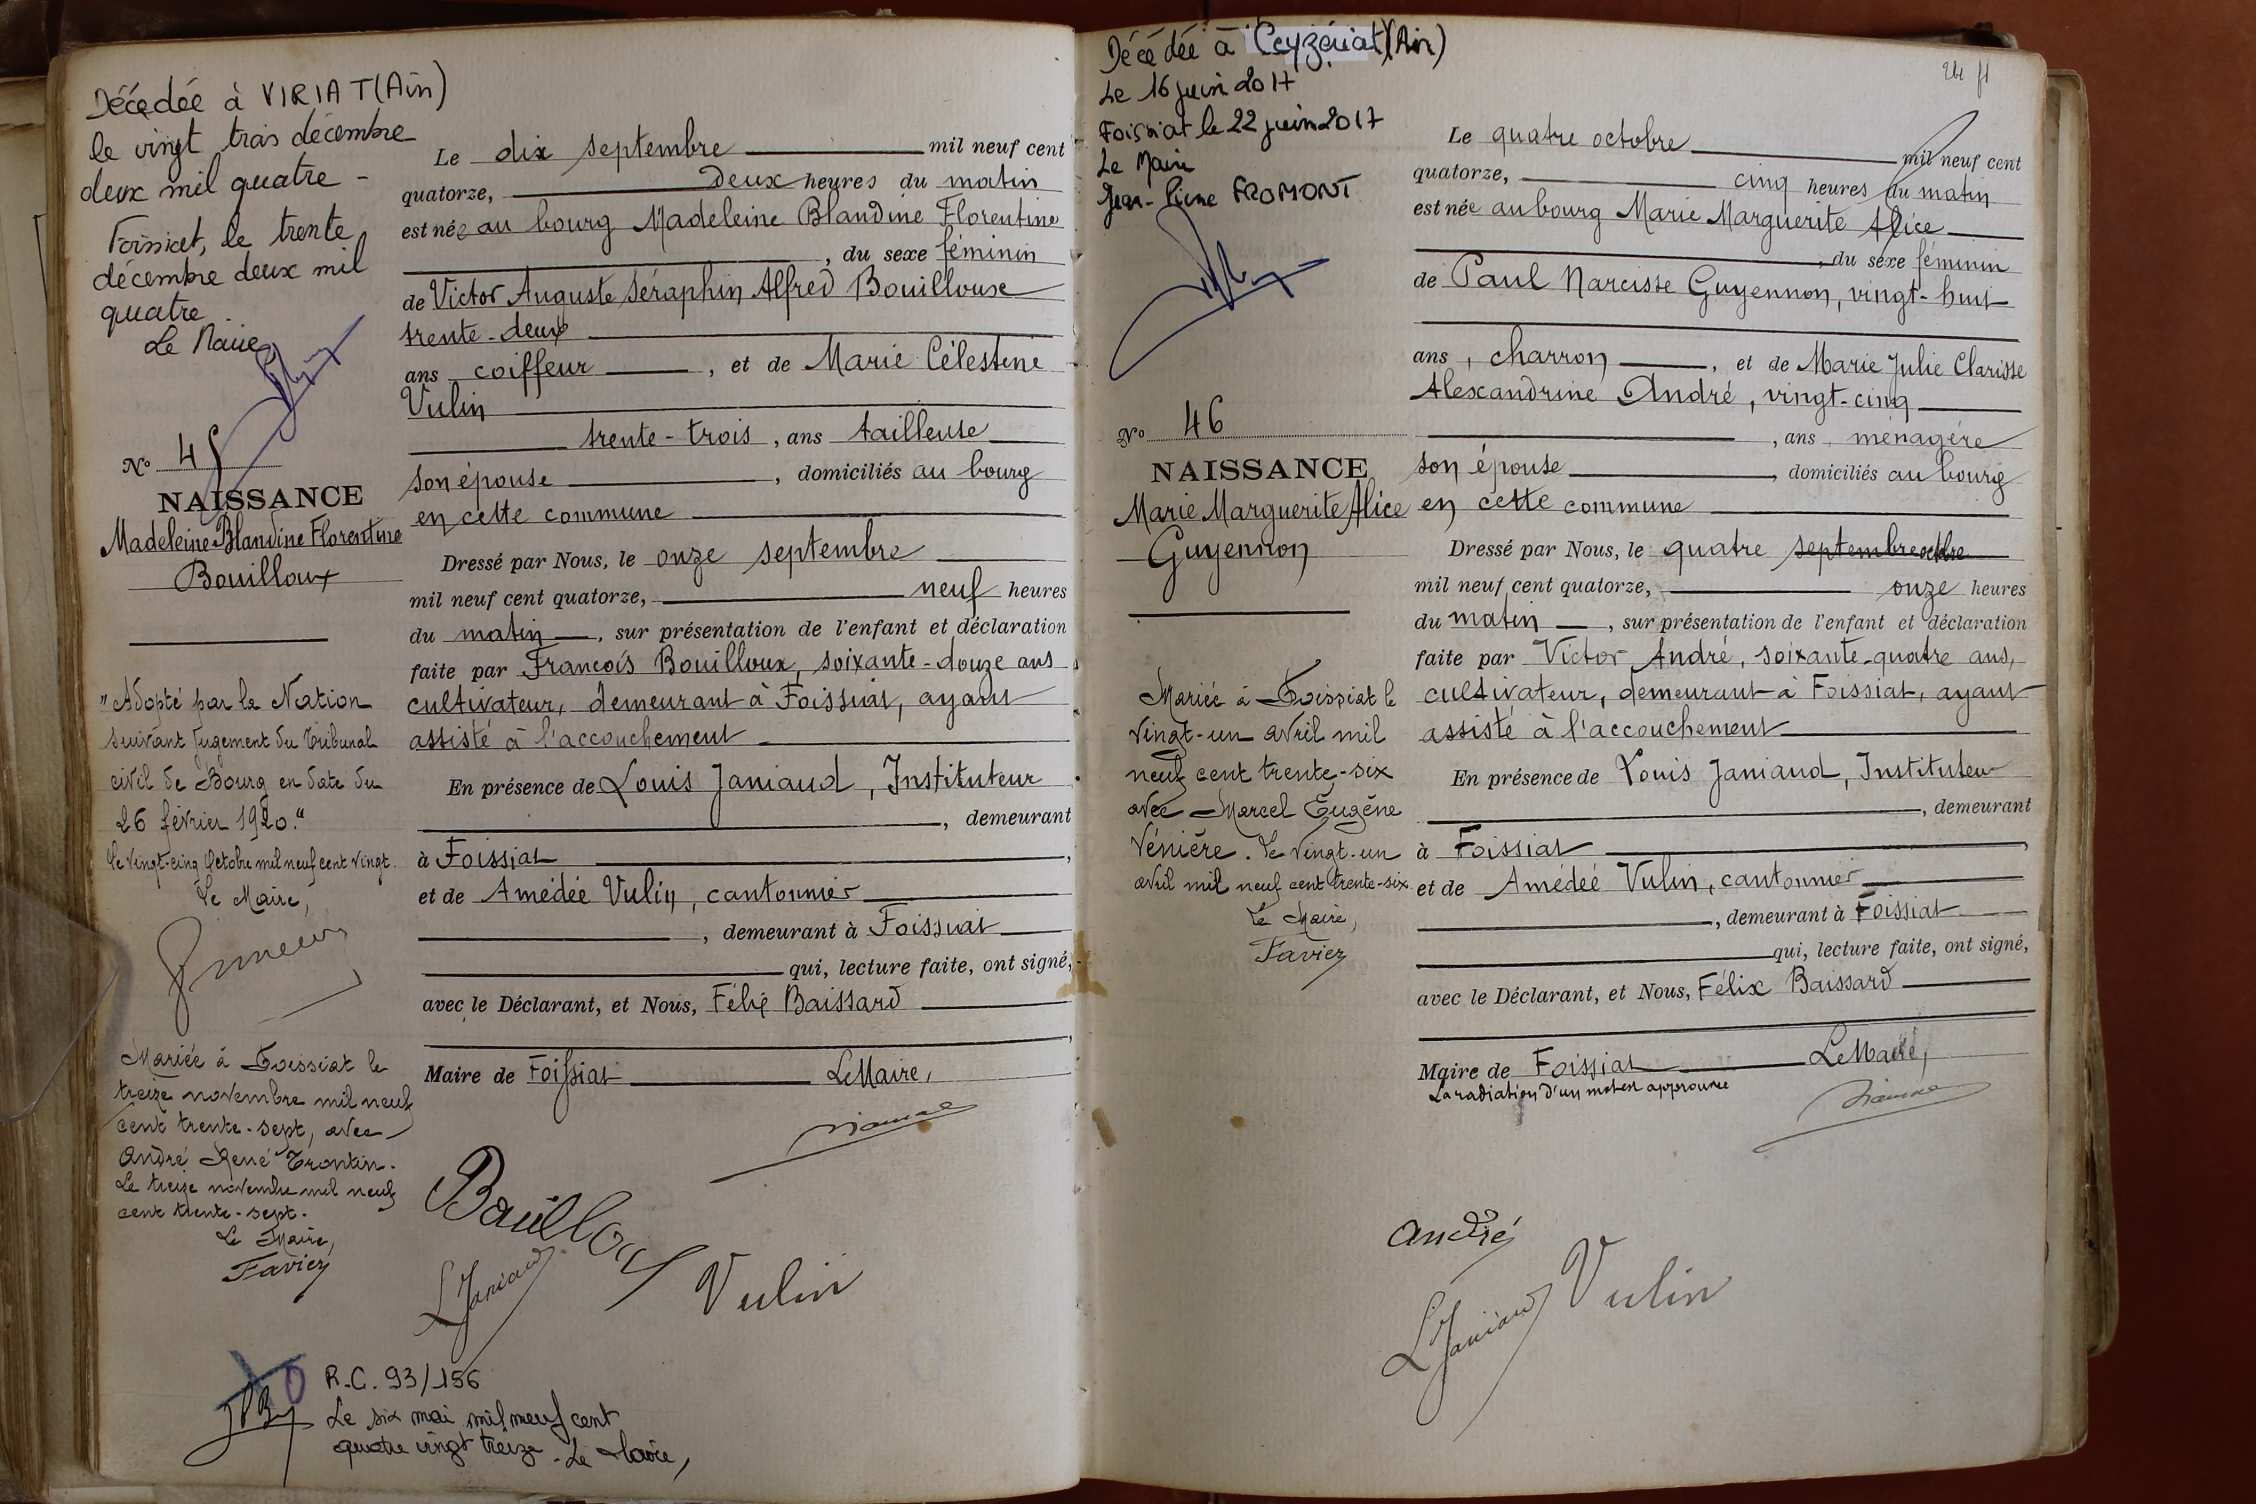 Décédée à VIRIAT (Ain)
le vingt trois décembre
deux mil quatre -
Foissiat, le trente
décembre deux mil
quatre
Le Maire
No 45
NAISSANCE
Madeleine Blandine Florentine
Bouilloux
"Adopté par la Nation
suivant jugement du Tribunal
civil de Bourg en date du
26 février 1920."
Le vingt-cinq Octobre mil neuf cent vingt.
Le Maire,
Mariée à Foissiat le
treize novembre mil neuf
cent trente-sept, avec
André René Trontin.
Le treize novembre mil neuf
cent trente-sept.
Le Maire,
Favier
Le dix septembre mil neuf cent
quatorze, Deux heures du matin
est née au bourg Madeleine Blandine Florentine
, du sexe féminin
de Victor Auguste Séraphin Alfred Bouilloux
trente-deux
ans coiffeur , et de Marie Célestine
Vulin
trente-trois , ans tailleuse
son épouse , domiciliés au bourg
en cette commune
Dressé par Nous, le onze septembre
mil neuf cent quatorze, neuf heures
du matin , sur présentation de l'enfant et déclaration
faite par François Bouilloux, soixante-douze ans
cultivateur, demeurant à Foissiat, ayant
assisté à l'accouchement
En présence de Louis Janiaud, Instituteur
, demeurant
à Foissiat ,
et de Amédée Vulin, cantonnier
, demeurant à Foissiat
qui, lecture faite, ont signé,
avec le Déclarant, et Nous, Félix Baissard
,
Maire de Foissiat Le Maire,
Bouilloux
L Janiaud
Vulin
R.C. 93/156
Le six mai mil neuf cent
quatre vingt treize - Le Maire,
Décédée à Ceyzériat (Ain)
Le 16 juin 2017
Foissiat le 22 juin 2017
Le Maire
Jean-Pierre FROMONT
No 46
NAISSANCE
Marie Marguerite Alice
Guyennon
Mariée à Foissiat le
vingt-un avril mil
neuf cent trente-six
avec Marcel Eugène
Vénière. Le vingt-un
avril mil neuf cent trente-six.
Le Maire,
Favier
Le quatre octobre mil neuf cent
quatorze, cinq heures du matin
est née au bourg Marie Marguerite Alice
, du sexe féminin
de Paul Narcisse Guyennon, vingt-huit
ans , charron , et de Marie Julie Clarisse
Alexandrine André, vingt-cinq
, ans ménagère
son épouse , domiciliés au bourg
en cette commune
Dressé par Nous, le quatre septembre octobre
mil neuf cent quatorze, onze heures
du matin , sur présentation de l'enfant et déclaration
faite par Victor André, soixante-quatre ans,
cultivateur, demeurant à Foissiat, ayant
assisté à l'accouchement
En présence de Louis Janiaud, Instituteur
, demeurant
à Foissiat ,
et de Amédée Vulin, cantonnier
, demeurant à Foissiat
qui, lecture faite, ont signé,
avec le Déclarant, et Nous, Félix Baissard
Maire de Foissiat Le Maire,
La radiation d'un mot est approuvée
André
L Janiaud
Vulin